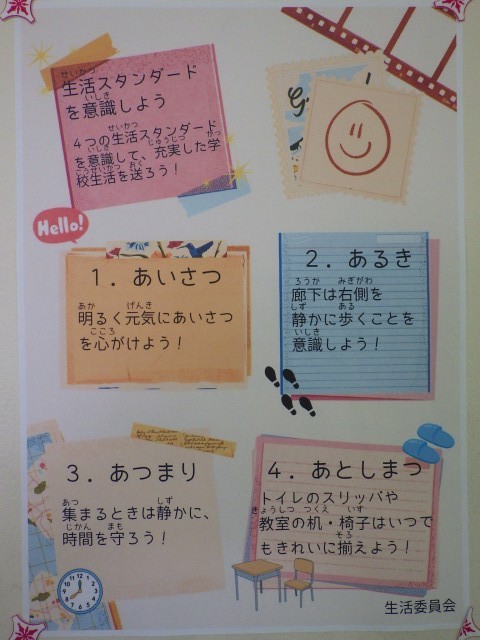 生活スタンダード
を意識しよう
4つの生活スタンダード
を意識して、充実した学
校生活を送ろう!
Hello!
1. あいさつ
明るく元気にあいさつ
を心がけよう!
2. あるき
廊下は右側を
静かに歩くことを
意識しよう!
3. あつまり
集まるときは静かに、
時間を守ろう!
4. あとしまつ
トイレのスリッパや
教室の机・椅子はいつで
もきれいに揃えよう!
生活委員会